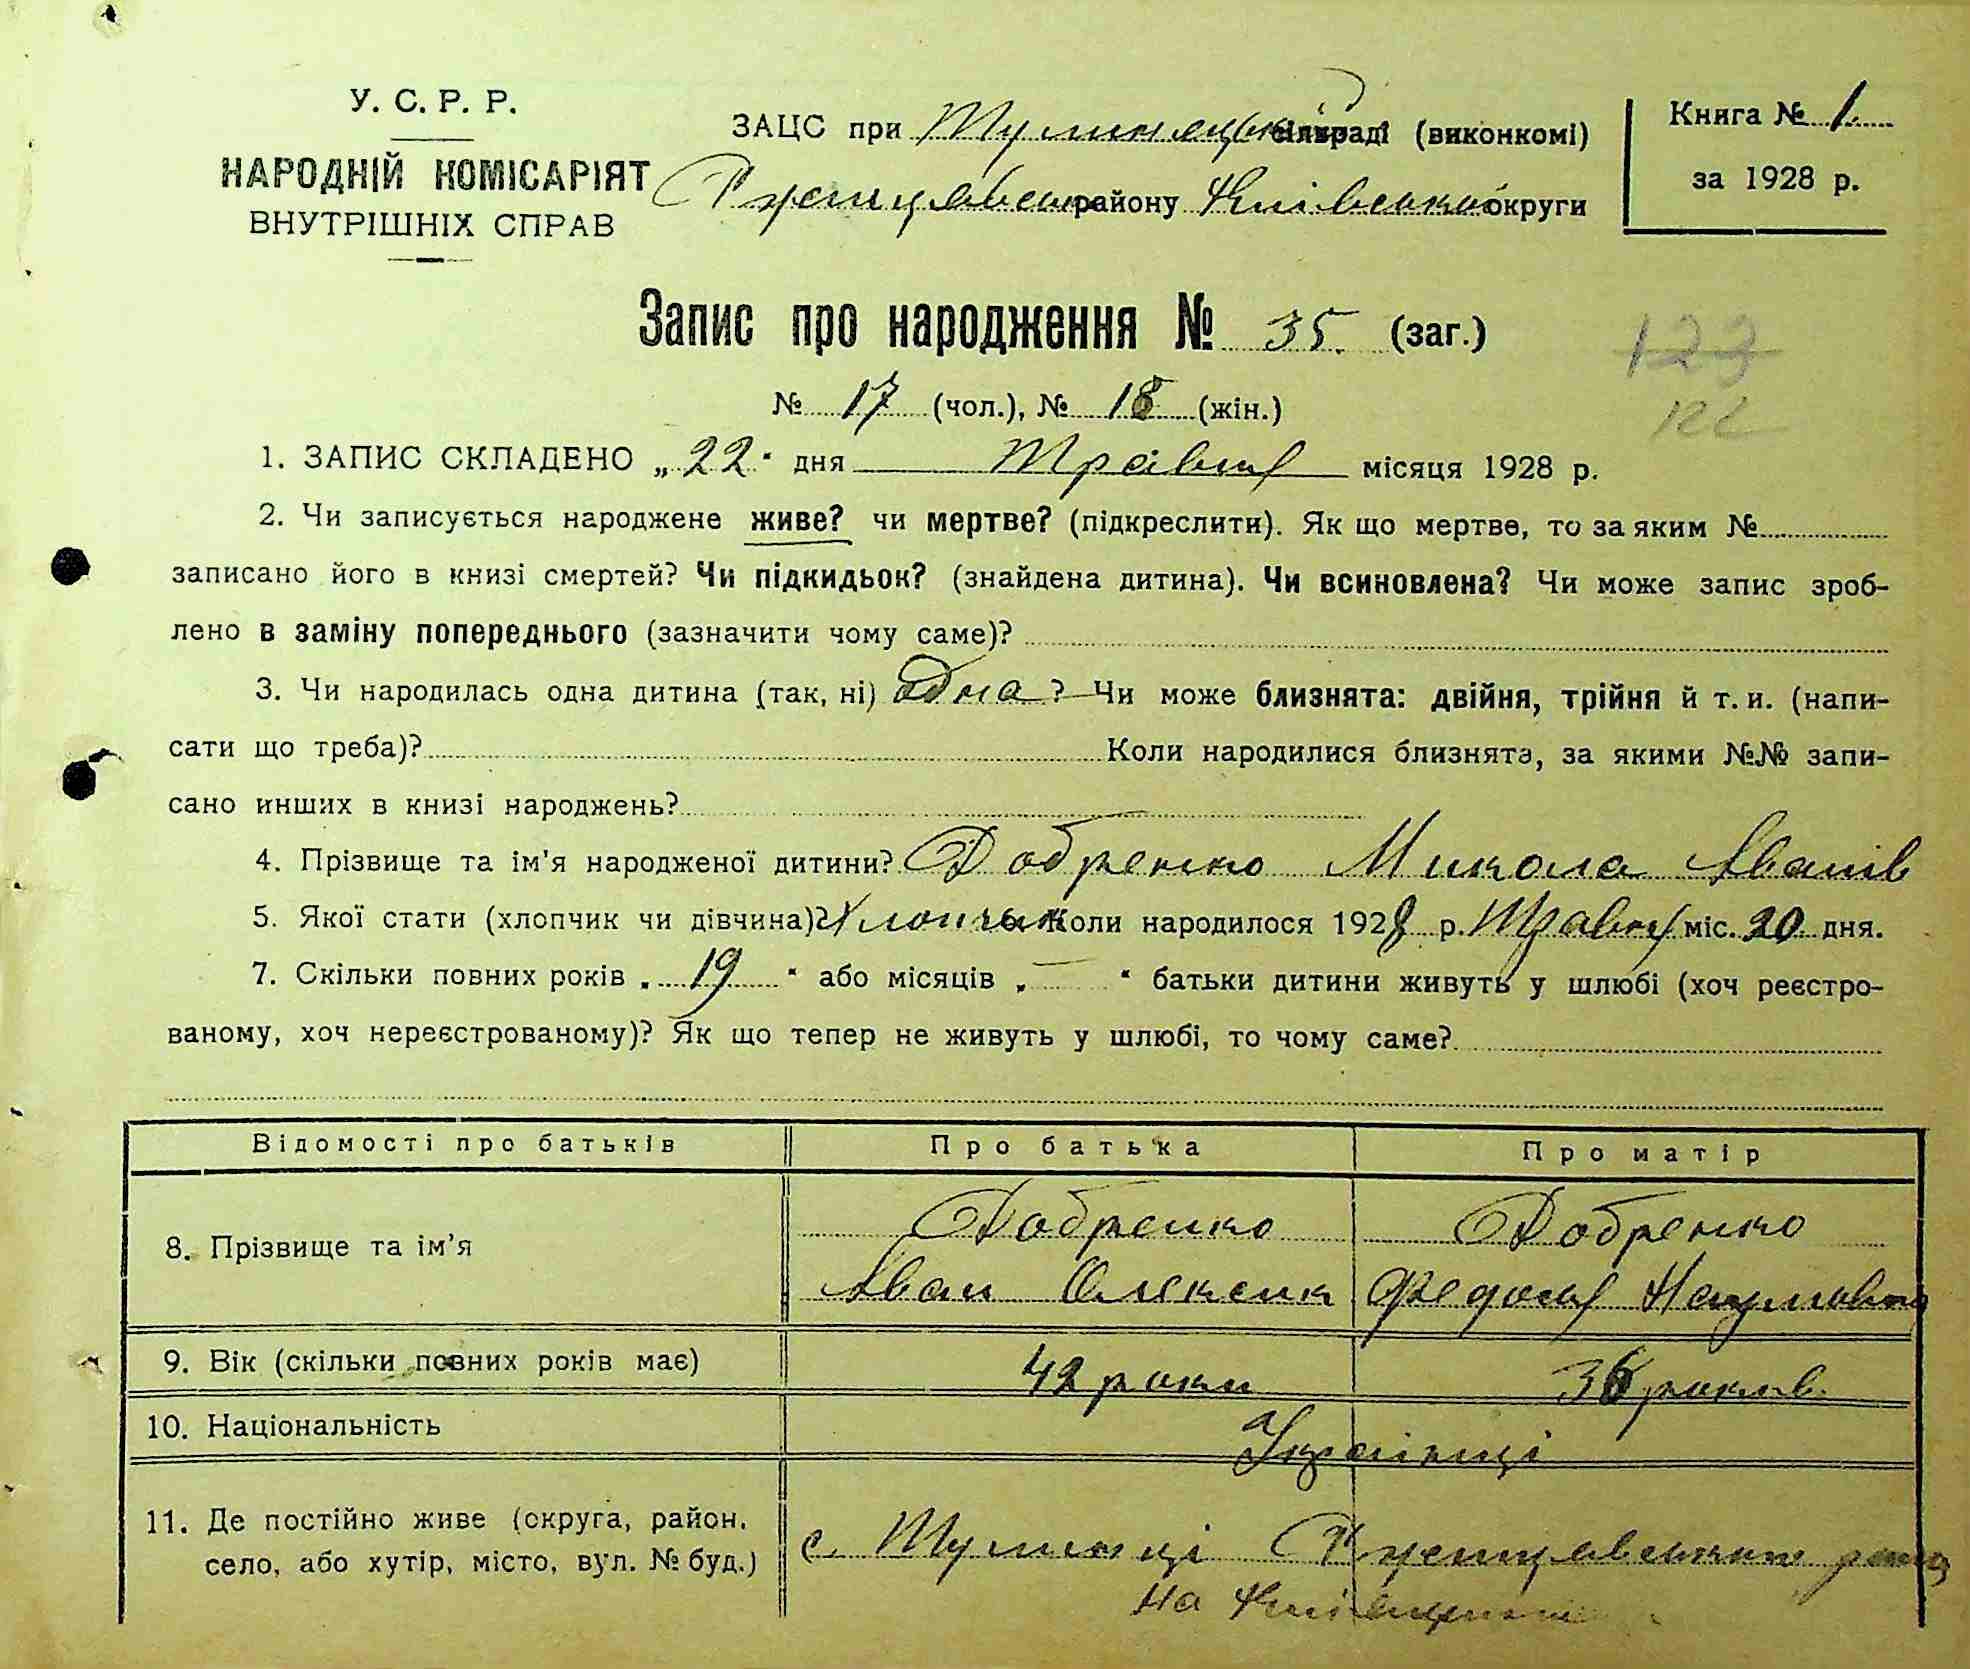 У. С. Р. Р.
НАРОДНІЙ КОМІСАРІЯТ
ВНУТРІШНІХ СПРАВ
ЗАЦС при Тулинецькій сільраді (виконкомі)
району Київської округи
Книга № 1.
за 1928 р.
Запис про народження № 35. (заг.)
123
122
№ 17 (чол.), № 18 (жін.)
1. ЗАПИС СКЛАДЕНО „22“ дня Травня місяця 1928 р.
2. Чи записується народжене живе? чи мертве? (підкреслити). Як що мертве, то за яким №
записано його в книзі смертей? Чи підкидьок? (знайдена дитина). Чи всиновлена? Чи може запис зроб-
лено в заміну попереднього (зазначити чому саме)?
3. Чи народилась одна дитина (так, ні) Одна? Чи може близнята: двійня, трійня й т. и. (напи-
сати що треба)? Коли народилися близнята, за якими №№ запи-
сано инших в книзі народжень?
4. Прізвище та ім’я народженої дитини? Добренко Микола Іванів
5. Якої стати (хлопчик чи дівчина)? Хлопчик Коли народилося 1928 р. Травня міс. 20 дня.
7. Скільки повних років „ 19 “ або місяців „ — “ батьки дитини живуть у шлюбі (хоч реєстро-
ваному, хоч нереєстрованому)? Як що тепер не живуть у шлюбі, то чому саме?
Відомості про батьків Про батька Про матір
8. Прізвище та ім’я
Добренко Добренко
Іван Олексик Федосія Наумовна
9. Вік (скільки повних років має) 42 роки 36 років.
10. Національність Українці
11. Де постійно живе (округа, район,
село, або хутір, місто, вул. № буд.)
с. Тулинці
на Київщині